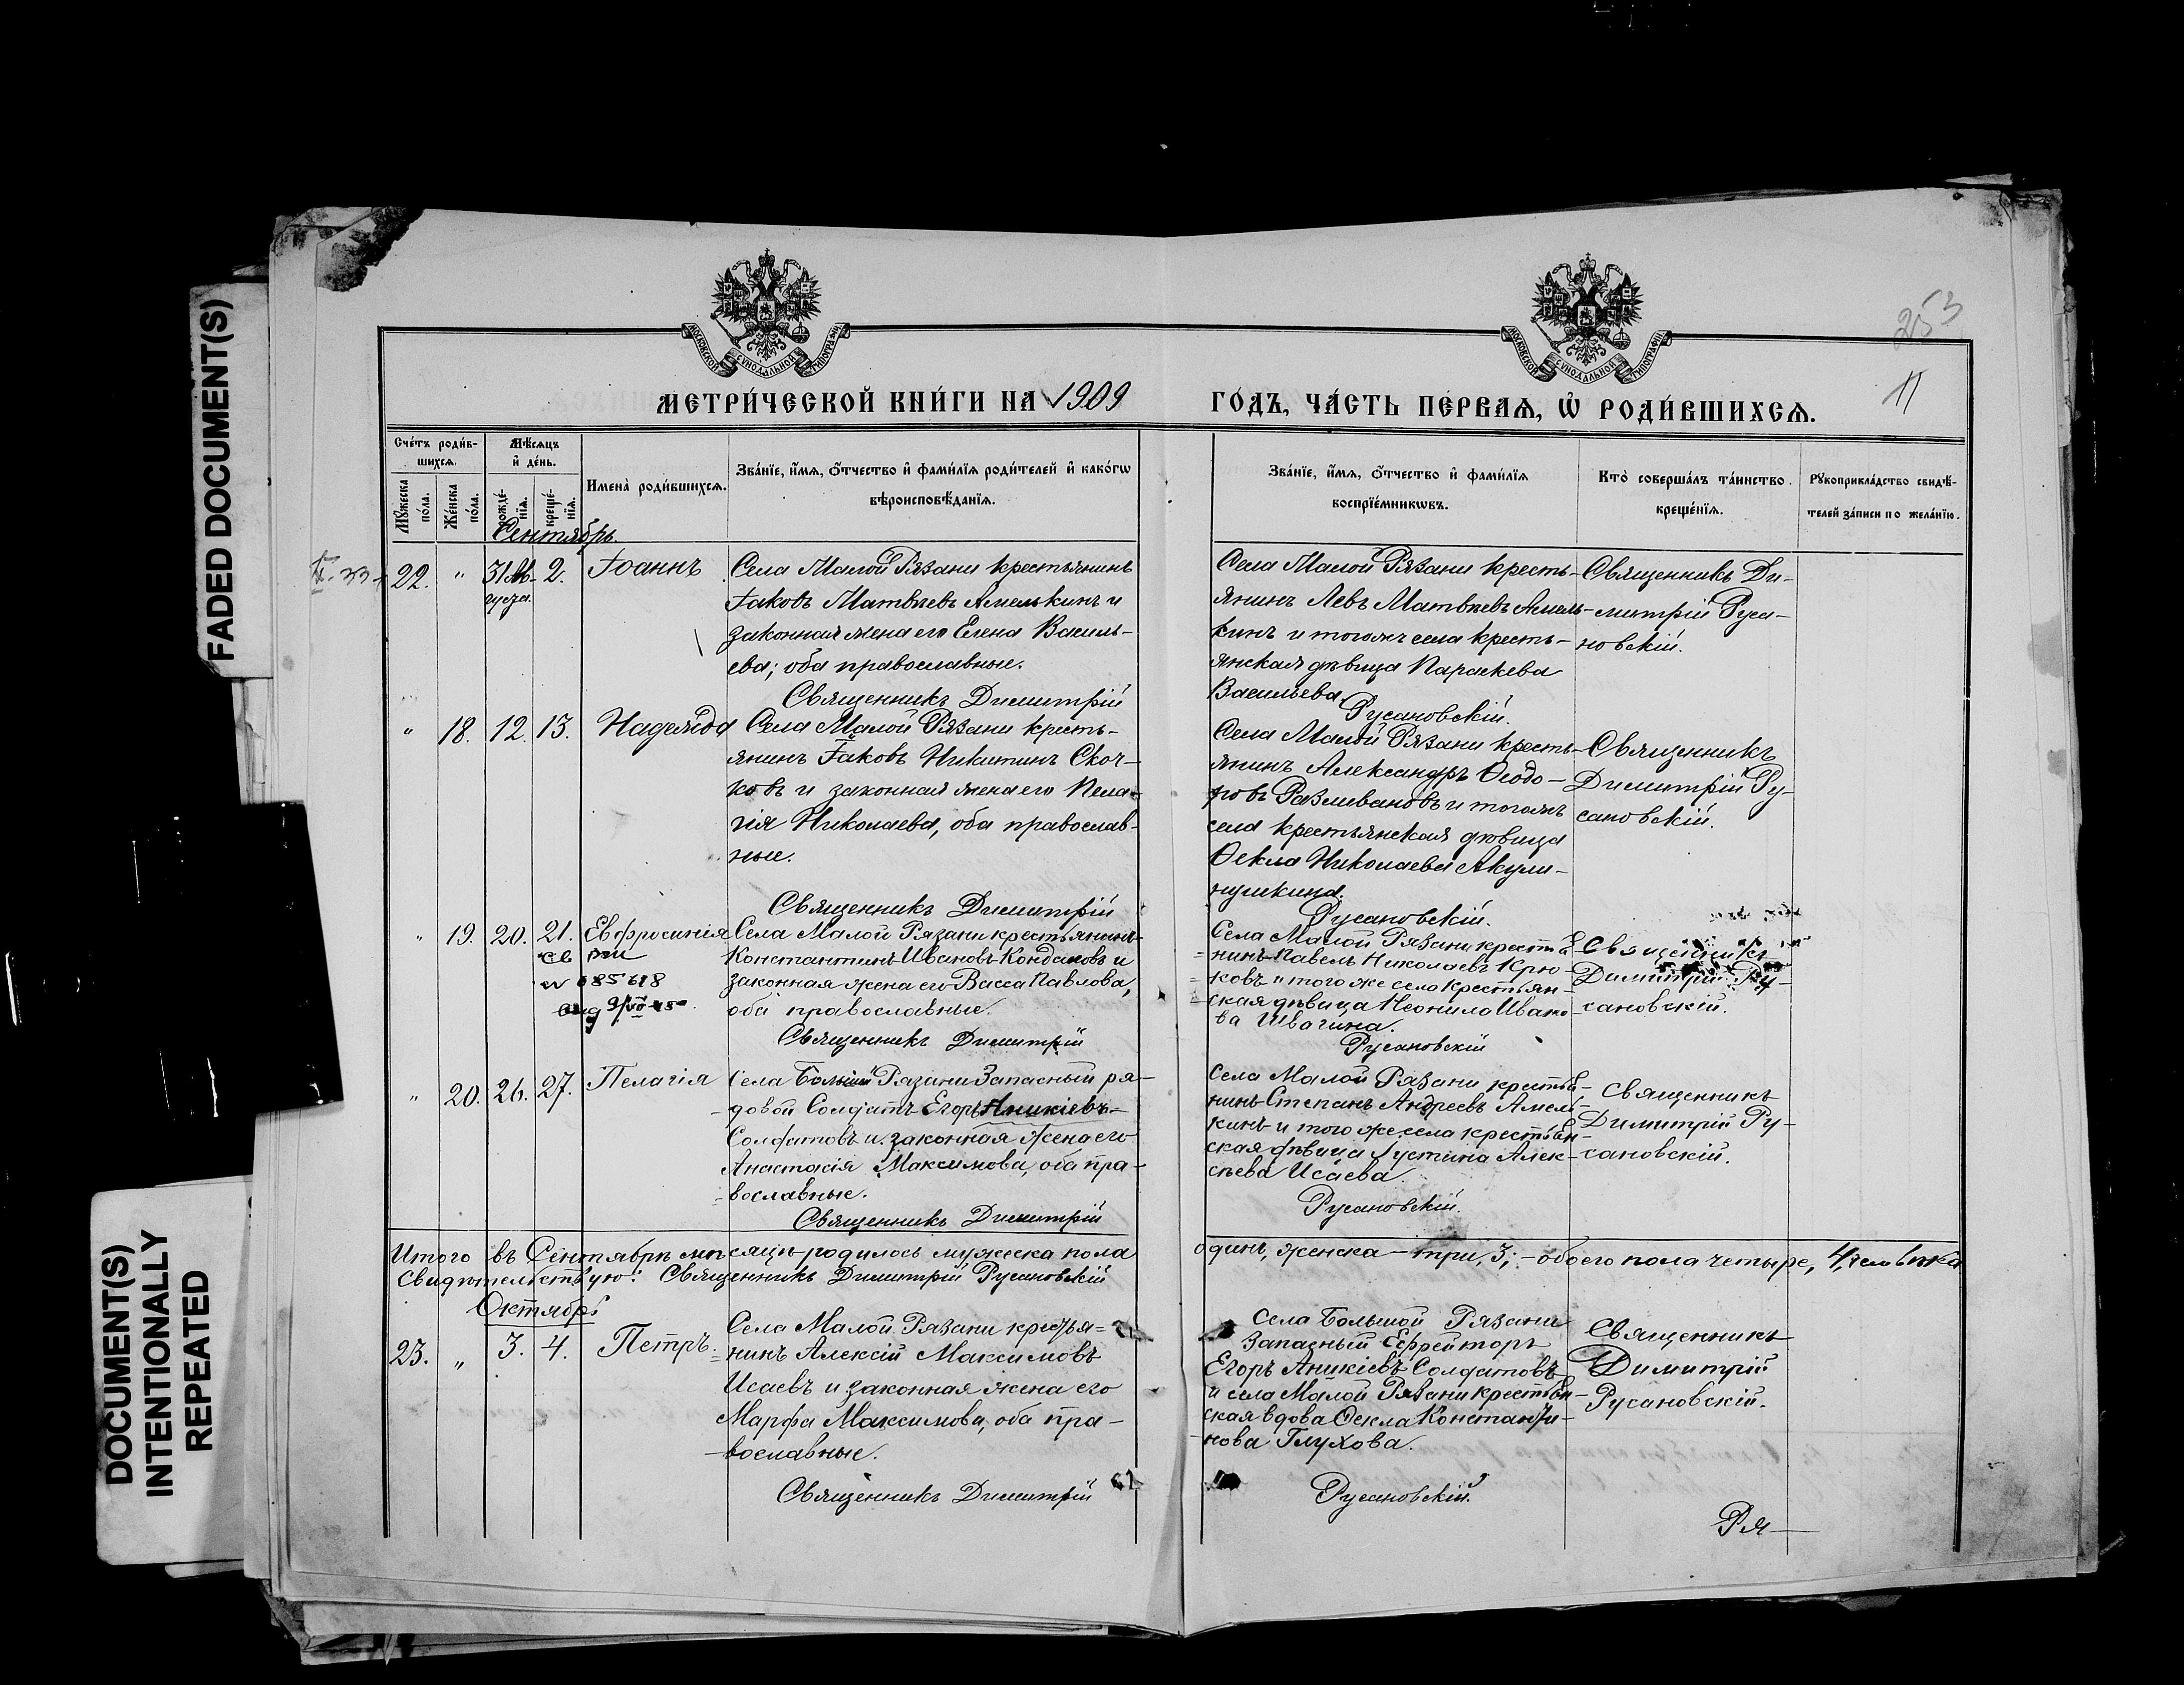 FADED DOCUMENT(S)
DOCUMENT(S)
INTENTIONALLY
REPEATED
МОСКОВСКОЙ СѴНОДАЛЬНОЙ ТИПОГРАФІИ
МОСКОВСКОЙ СѴНОДАЛЬНОЙ ТИПОГРАФІИ
253
11
МЕТРИ́ЧЕСКОЙ КНИ́ГИ НА 1909
ГО́ДЪ, ЧА́СТЬ ПЕ́РВАѦ, Ѽ РОДИ́ВШИХСѦ.
Сче́тъ роди́в-
шихсѧ.
Мꙋ́жеска
по́ла.
Же́нска
по́ла.
Мѣ́сѧцъ
и҆ де́нь.
рожде́-
нїѧ.
креще́-
нїѧ.
Имена̀ роди́вшихсѧ.
Зва́нїе, и҆́мѧ, ѻ҆́тчество и҆ фами́лїѧ роди́телей и҆ како́гѡ
вѣроисповѣ́данїѧ.
Зва́нїе, и҆́мѧ, ѻ҆́тчество и҆ фами́лїѧ
воспрїе́мникѡвъ.
Кто̀ соверша́лъ та́инство
креще́нїѧ.
Рꙋкоприкла́дство свидѣ́-
телей за́писи по жела́нїю.
Сентябрь.
22. " 31 Ав- 2. Іоаннъ
густа.
Села Малой Рязани крестьянинъ
Іаковъ Матвѣевъ Амелькинъ и
законная жена его Елена Василь-
ева; оба православные.
Священникъ Димитрій
Села Малой Рязани кресть-
янинъ Левъ Матвѣевъ Амель-
кинъ и тогожъ села кресть-
янская дѣвица Параскева
Васильева
Русановскій.
Священникъ Ди-
митрій Руса-
новскій.
" 18. 12. 13. Надежда
Села Малой Рязани кресть-
янинъ Іаковъ Никитинъ Скоч-
ковъ и законная жена его Пела-
гія Николаева, оба православ-
ные.
Священникъ Димитрій
Села Малой Рязани кресть-
янинъ Александръ Ѳеодо-
ровъ Разливановъ и тогожъ
села крестьянская дѣвица
Ѳекла Николаева Акули-
нушкина.
Русановскій.
Священникъ
Димитрій Ру-
сановскій.
" 19. 20. 21. Евфросинія
685618
Села Малой Рязани крестьянинъ
Константинъ Ивановъ Кондаковъ и
законная жена его Васса Павлова,
оба православные.
Священникъ Димитрій
Села Малой Рязани крестья-
нинъ Павелъ Николаевъ Крю-
ковъ и того же села крестьян-
ская дѣвица Неонила Ивано-
ва Швагина.
Русановскій
Священникъ
Димитрій Ру-
сановскій.
" 20. 26. 27. Пелагія
Села Большой Рязани Запасный ря-
довой Солдатъ Егоръ Аникіевъ
Солдатовъ и законная жена его
Анастасія Максимова, оба пра-
вославные.
Священникъ Димитрій
Села Малой Рязани крестья-
нинъ Степанъ Андреевъ Амель-
кинъ и того же села крестьян-
ская дѣвица Іустина Алек-
сѣева Исаева.
Русановскій.
Священникъ
Димитрій Ру-
сановскій.
Итого въ Сентябрѣ мѣсяцѣ родилось мужеска пола одинъ, женска - три, 3; - обоего пола четыре, 4, человѣка
Свидѣтельствую: Священникъ Димитрій Русановскій
Октябрь
23. " 3. 4. Петръ.
Села Малой Рязани крестья=
нинъ Алексій Максимовъ
Исаевъ и законная жена его
Марфа Максимова, оба пра-
вославные.
Священникъ Димитрій
Села Большой Рязани
Запасный Ефрейторъ
Егоръ Аникіевъ Солдатовъ
и села Малой Рязани крестьян-
ская вдова Ѳекла Константи-
нова Глухова.
Русановскій.
Священникъ
Димитрій
Русановскій.
Ря-